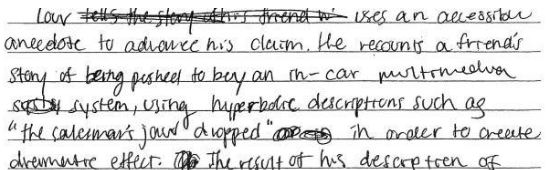 Law tells the story of his friend w uses an accessible
anecdote to advance his claim. He recounts a friend's
story of being pushed to buy an in-car multimedia
system, using hyperbolic descriptions such as
"the salesman's jaw dropped" in order to create
dramatic effect. The result of his description of